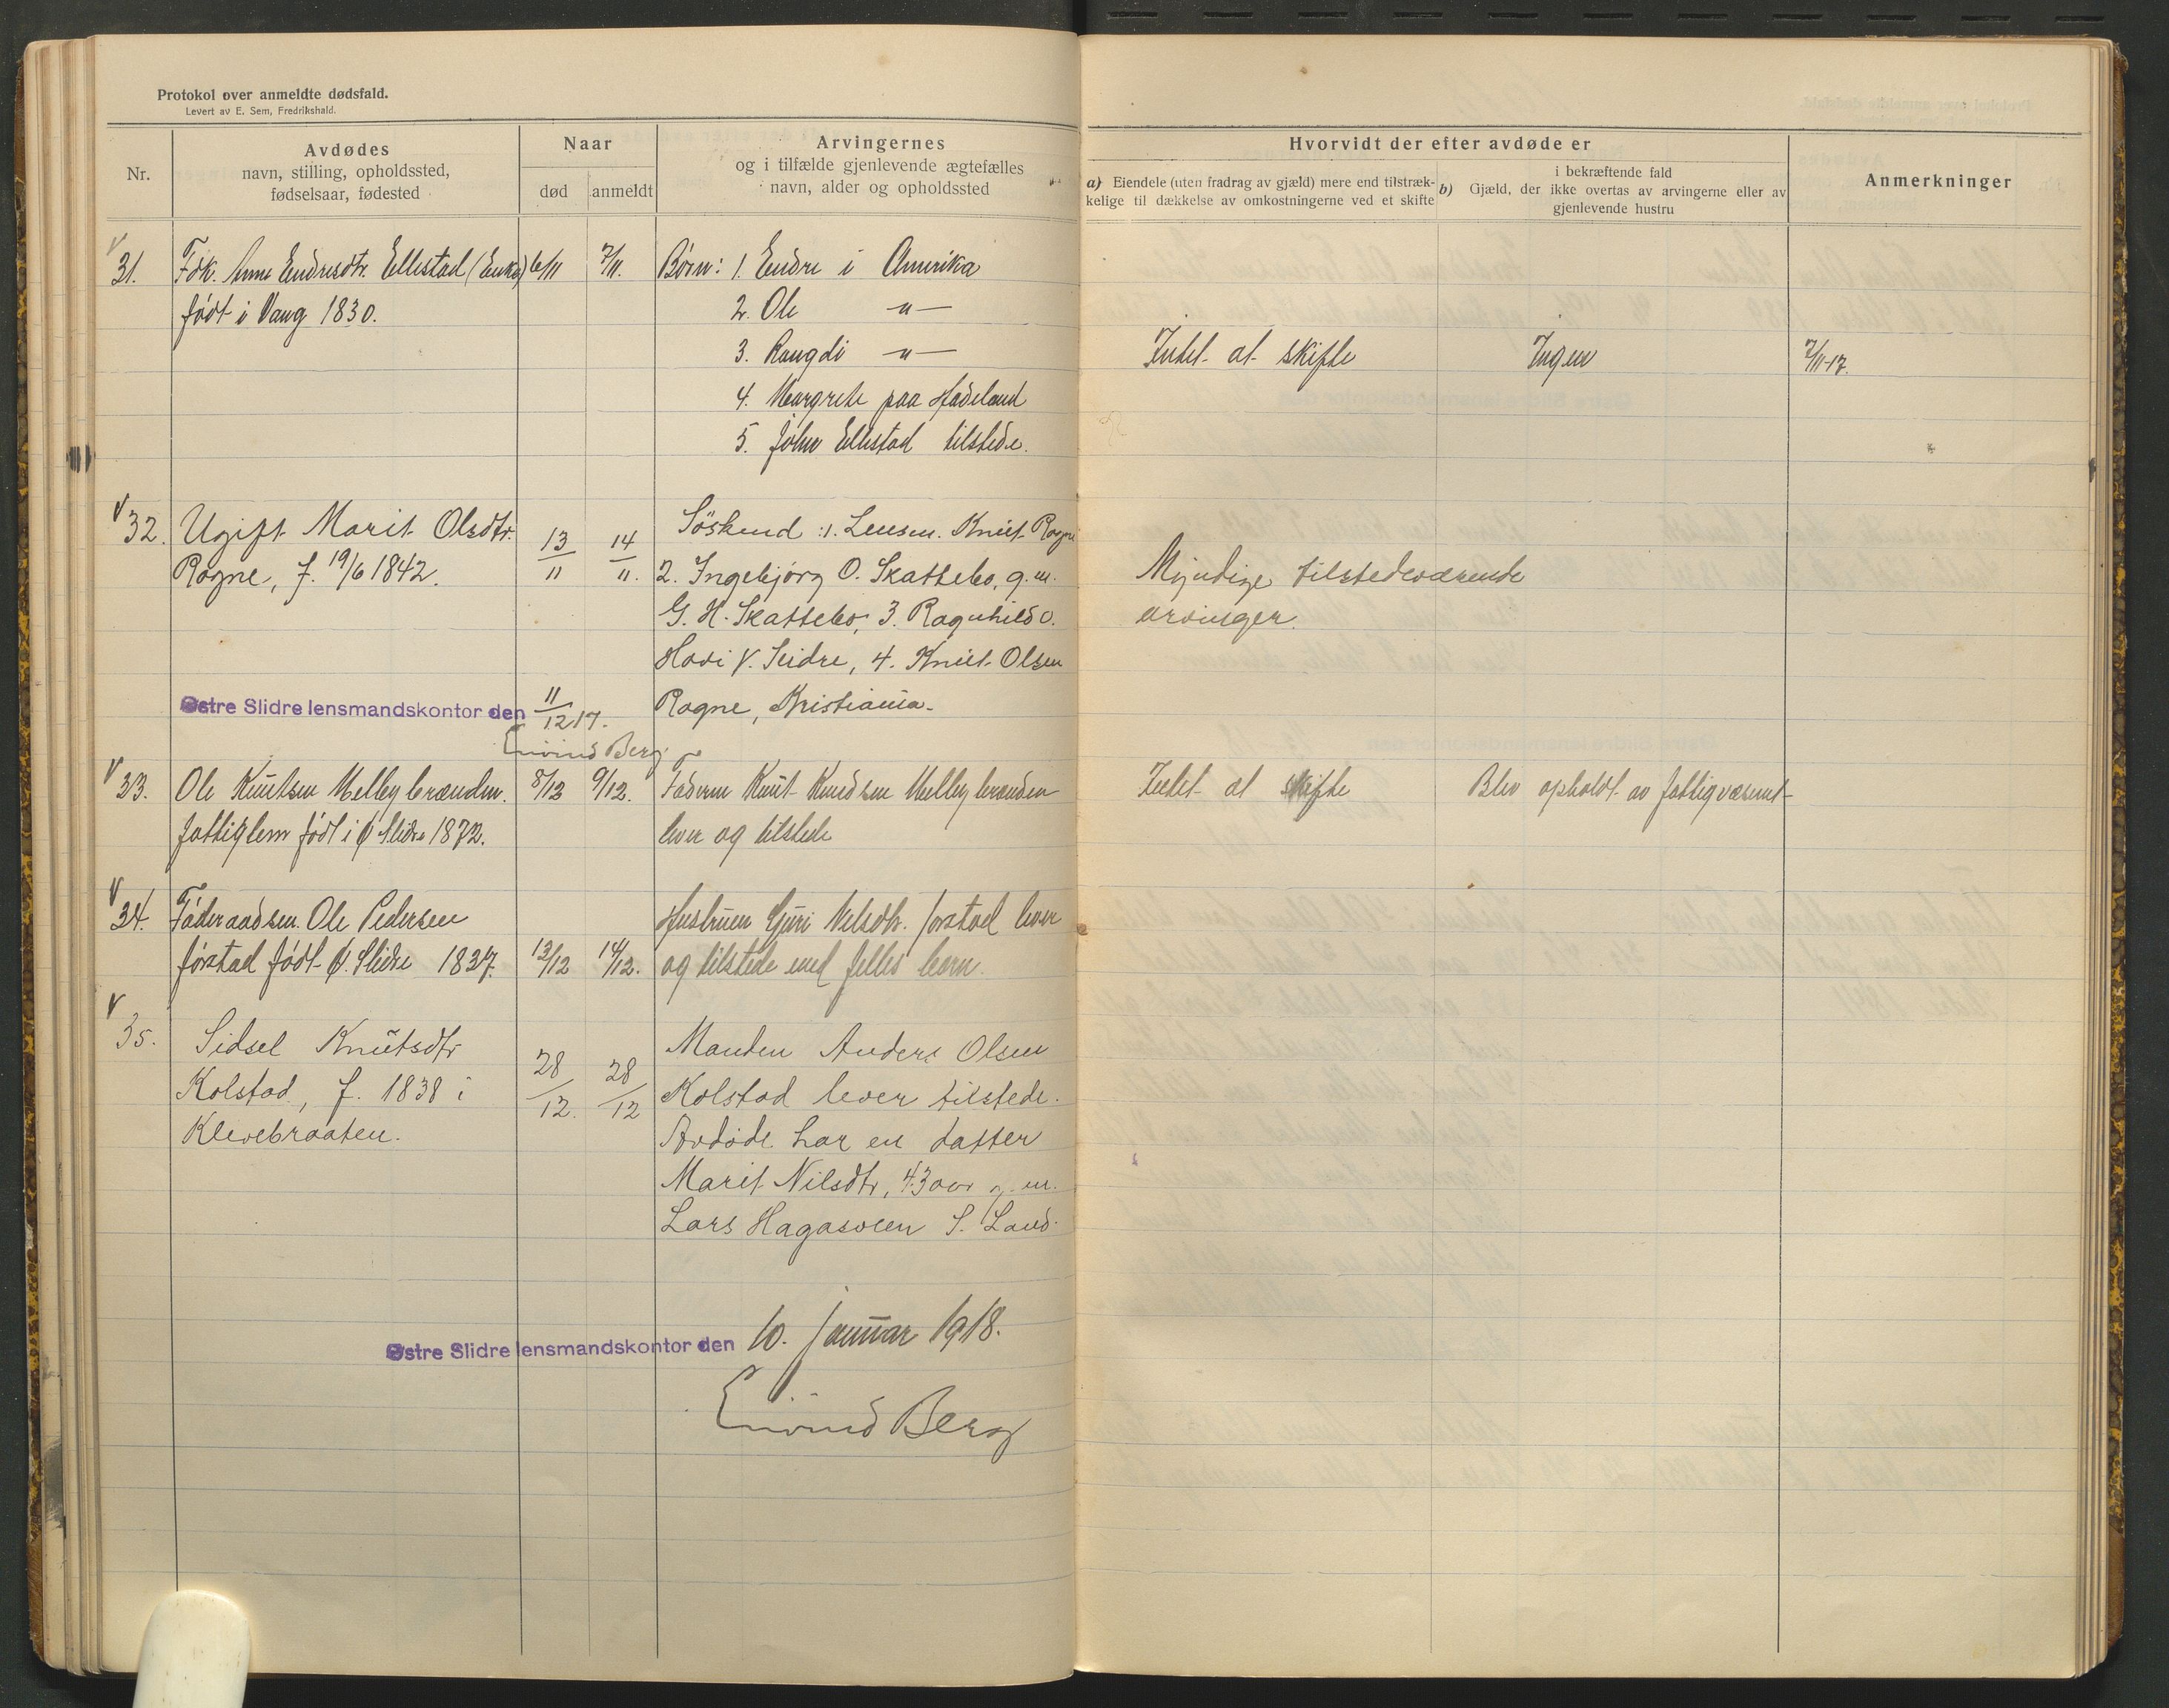 Protokol over anmeldte dødsfald.
Levert av E. Sem, Fredrikshald.
Nr.
Avdødes
navn, stilling, opholdssted,
fødselsaar, fødested
Naar
død
anmeldt
Arvingernes
og i tilfælde gjenlevende ægtefælles
navn, alder og opholdssted
Hvorvidt der efter avdøde er
a) Eiendele (uten fradrag av gjæld) mere end tilstræk-
kelige til dækkelse av omkostningerne ved et skifte
i bekræftende fald
b) Gjæld, der ikke overtas av arvingerne eller av
gjenlevende hustru
Anmerkninger
31. Fdk. Anne Endresdtr. Ellestad (Enke) 6/11 7/11. Børn: 1. Endre i Amerika
født i Vang 1830. 2. Ole —"—
3. Rangdi —"— Intet at skifte Ingen 7/11-17.
4. Margrete paa Hadeland
5. John Ellestad tilstede.
32. Ugift Marit Olsdtr. 13/11 14/11. Söskend: 1. Lensm. Knut Rogne
Rogne, f. 19/6 1842. 2. Ingebjörg O. Skattebo, g. m. Myndige tilstedeværende
G. H. Skattebo, 3. Ragnhild O. arvinger.
Hovi V. Slidre, 4. Knut Olsen
Østre Slidre lensmandskontor den 11/12 17. Rogne, Kristiania.
Eivind Berg
33. Ole Knutsen Melleybrænden. 8/12 9/12. Faderen Knut Knudsen Melleybrænden Intet at skifte Blev opholdt av fattigvæsenet
fattiglem født i Ø Slidre 1872. lever og tilstede
34. Føderaadsm. Ole Pedersen Hustruen Guri Nilsdtr. Jørstad lever
Jørstad født Ø. Slidre 1837. 12/12 14/12. og tilstede med felles børn.
35. Sidsel Knutsdtr 28/12. 28/12 Manden Anders Olsen
Kolstad, f. 1838 i Kolstad lever tilstede.
Klevebraaten. Avdøde har en datter
Marit Nilsdtr, 43 aar g. m.
Lars Hagasveen S. Land.
Østre Slidre lensmandskontor den 10. januar 1918.
Eivind Berg